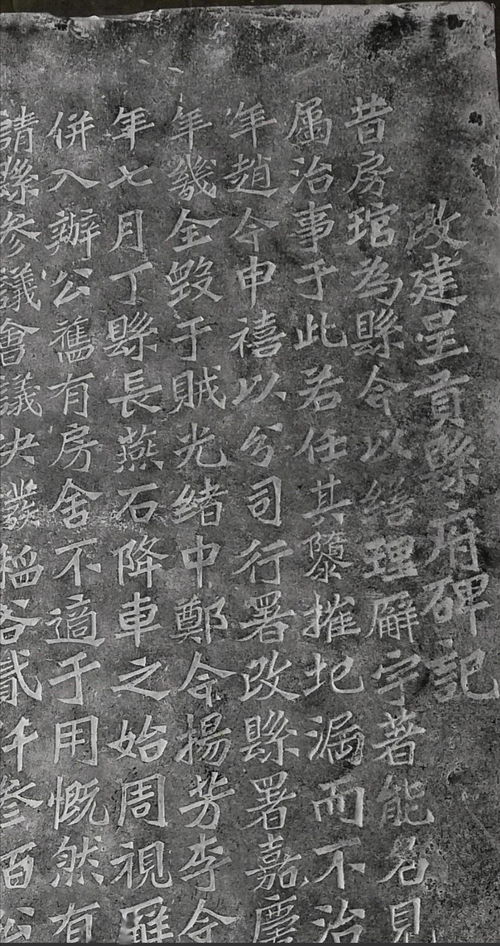 改建呈貢縣府碑記
昔房琯為縣令以繕理廨宇著能名見
属治事于此若任其隳摧圮漏而不治
年趙令申禧以分司行署改縣署嘉慶
年幾全毀于賊光緒中鄭令揚芳李令
年七月丁縣長燕石降車之始周視羅
併入辦公舊有房舍不適于用慨然有
請縣參議會議決撥稻谷貳仟參百公